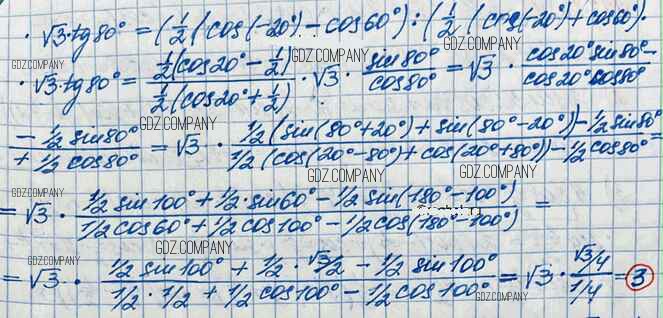 · √3·tg80° = (1/2(cos(-20°) - cos60°) : (1/2(cos(-20°) + cos60°)·
GDZ.COMPANY GDZ.COMPANY GDZ.COMPANY
· √3·tg80° = 1/2(cos20° - 1/2) / 1/2(cos20° + 1/2) · √3 · sin80°/cos80° = √3 · cos20° sin80° - / cos20° cos80°
GDZ.COMPANY GDZ.COMPANY
- 1/2 sin80° / + 1/2 cos80° = √3 · 1/2(sin(80°+20°) + sin(80°-20°)) - 1/2 sin80° / 1/2(cos(20°-80°) + cos(20°+80°)) - 1/2 cos80° =
GDZ.COMPANY GDZ.COMPANY GDZ.COMPANY
= √3 · 1/2 sin100° + 1/2·sin60° - 1/2 sin(180°-100°) / 1/2 cos60° + 1/2 cos100° - 1/2 cos(180°-100°) =
GDZ.COMPANY GDZ.COMPANY GDZ.COMPANY
= √3 · 1/2 sin100° + 1/2 · √3/2 - 1/2 sin100° / 1/2 · 1/2 + 1/2 cos100° - 1/2 cos100° = √3 · √3/4 / 1/4 = 3
GDZ.COMPANY GDZ.COMPANY